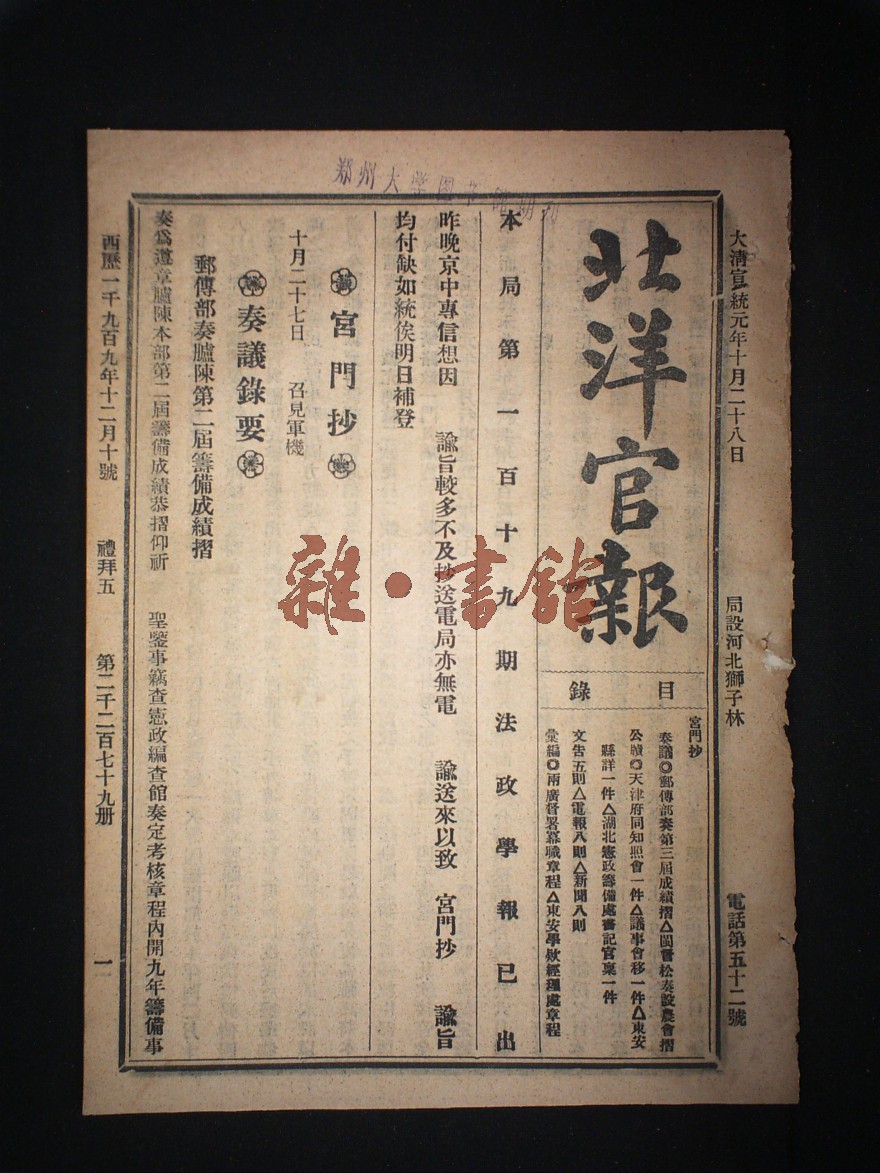 郑州大学图书馆期刊
大清宣統元年十月二十八日
局設河北獅子林
電話第五十二號
北洋官報
目錄
宮門抄
奏議◎郵傳部奏第二屆成績摺△閩督松奏設農會摺
公牘◎天津府同知照會一件△議事會移一件△東安
縣詳一件△湖北憲政籌備處書記官稟一件
文告五則△電報八則△新聞八則
彙編◎兩廣督署幕職章程△東安學欵經理處章程
本局第一百十九期法政學報已出
昨晚京中專信想因 諭旨較多不及抄送電局亦無電 諭送來以致 宮門抄 諭旨
均付缺如統俟明日補登
宮門抄
十月二十七日 召見軍機
奏議錄要
郵傳部奏臚陳第二屆籌備成績摺
奏爲遵章臚陳本部第二屆籌備成績恭摺仰祈 聖鑒事竊查憲政編查館奏定考核章程內開九年籌備事
西歷一千九百九年十二月十號
禮拜五
第二千二百七十九册
一
雜·書館